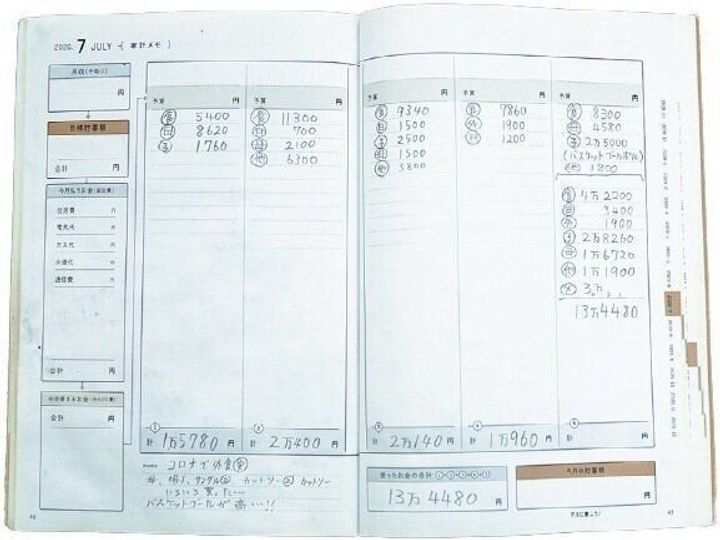 2020. 7 JULY -[ 家計メモ ]
月収(手取り)
円
目標貯蓄額
合計 円
住居費 円
電気代 円
ガス代 円
水道代 円
通信費 円
合計 円
合計 円
予算 円
食 5400
日 8620
子 1760
① 計 1万5780 円
予算 円
食 11300
日 700
母 2100
他 6300
② 計 2万400 円
予算 円
食 9340
日 1500
子 2500
母 1500
他 5800
③ 計 2万140 円
予算 円
食 7860
外 1900
日 1200
④ 計 1万960 円
予算 円
食 8300
母 4580
子 2万5000
(バスケットゴール
他 1800
食 4万2200
日 3400
外 1900
子 2万8260
母 1万6720
他 1万1900
3万
13万4480
⑤ 計 円
memo コロナで外食
サンダル カットソー カットソー
いろいろ買った〜
バスケットゴールが高い!!
使ったお金の合計 ①+②+③+④+⑤
13万4480 円
今月の貯蓄額
円
46
47